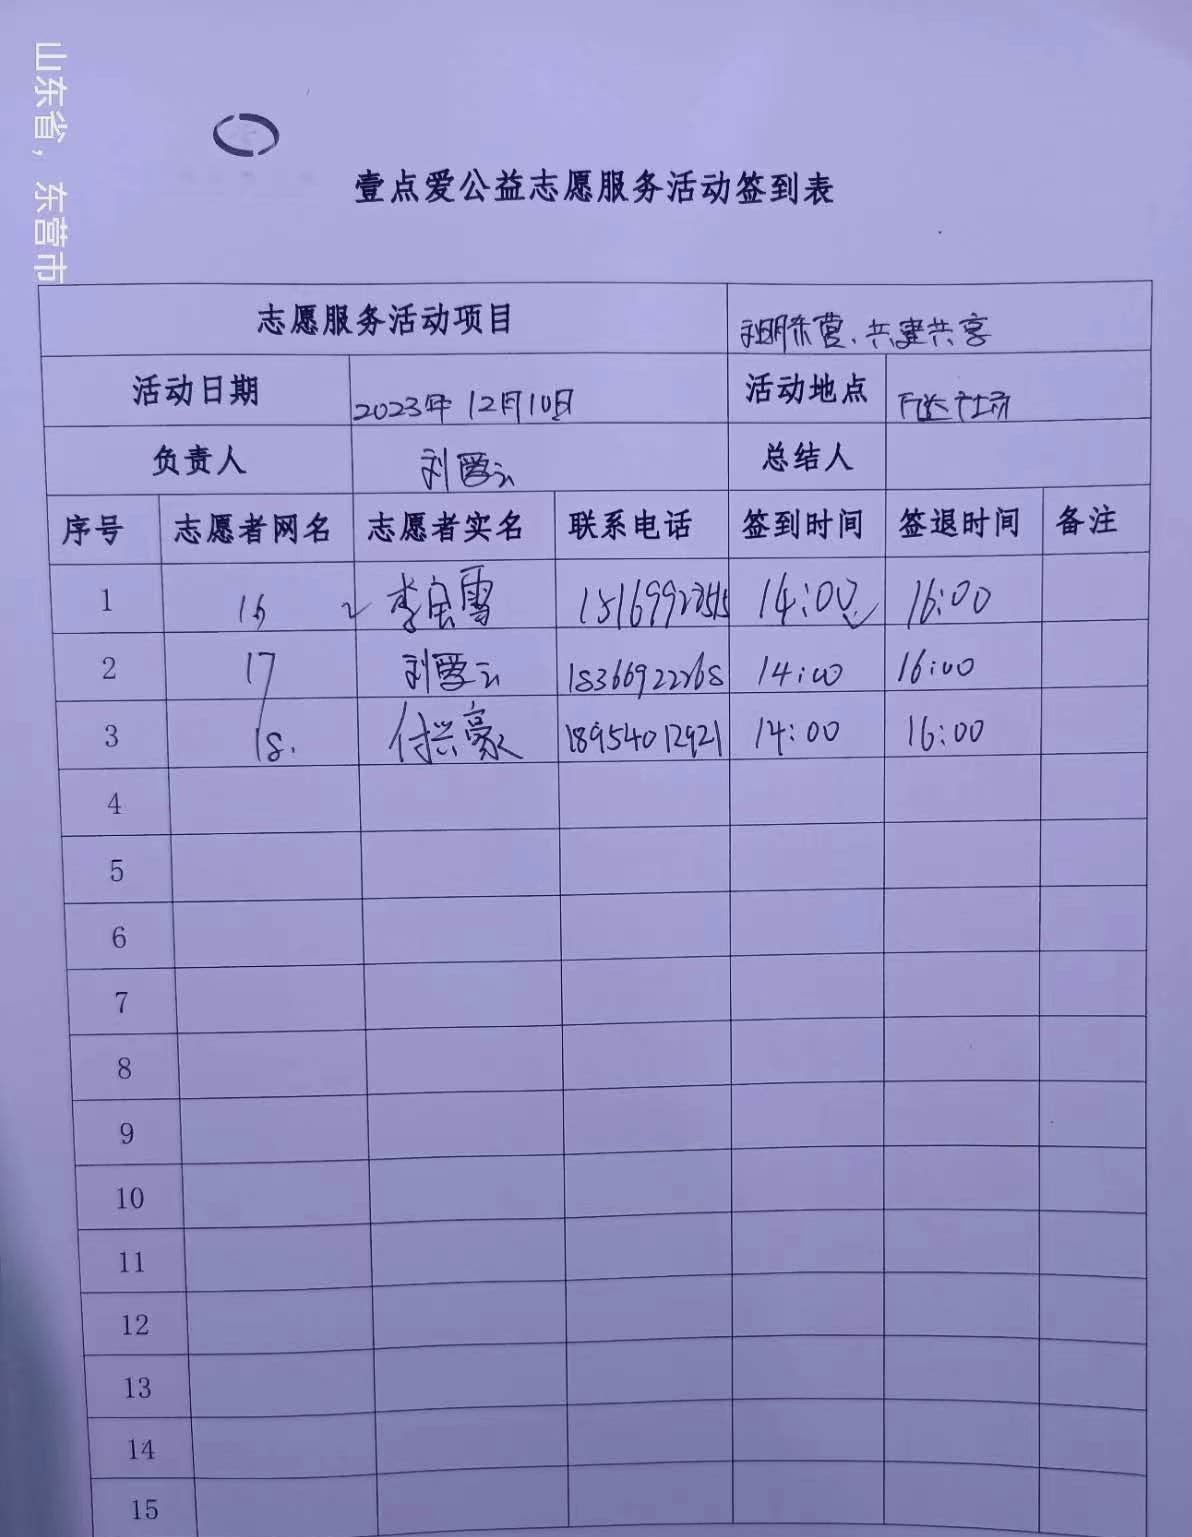 山东省，东营市
壹点爱公益志愿服务活动签到表
志愿服务活动项目 东营、共建共享
活动日期 2023年12月10日 活动地点
负责人 刘云 总结人
序号 志愿者网名 志愿者实名 联系电话 签到时间 签退时间 备注
1 16 李宝雪 14:00 16:00
2 17 刘云 18366922268 14:00 16:00
3 18. 付兴豪 18954012921 14:00 16:00
4
5
6
7
8
9
10
11
12
13
14
15